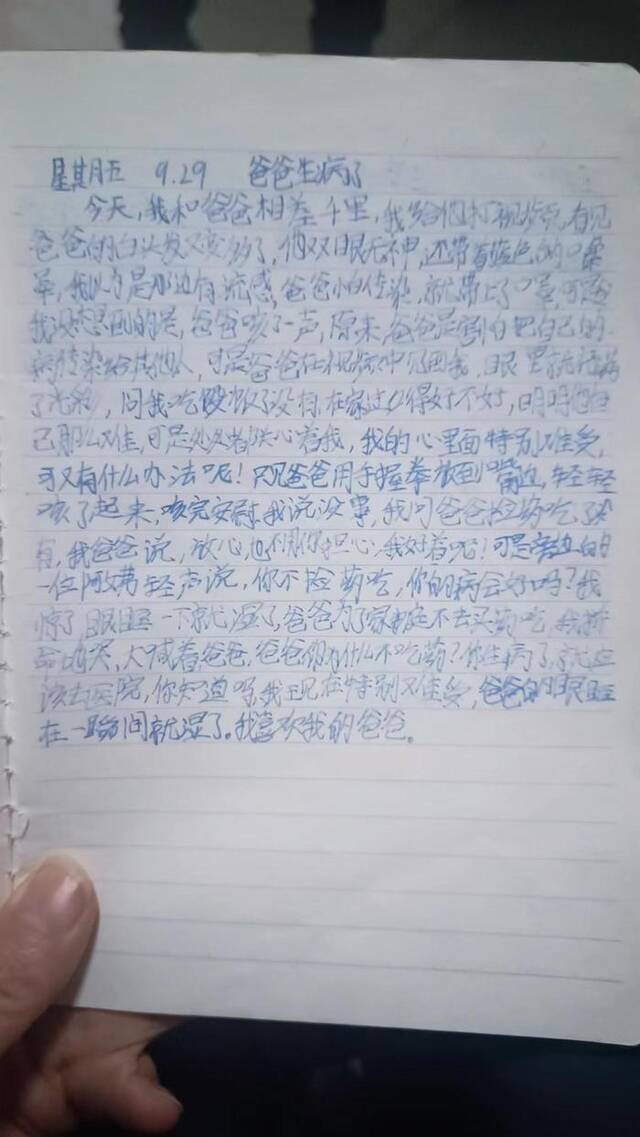 星期五 9.29 爸爸生病了
今天,我和爸爸相差千里,我给他打视频,看见
爸爸的白头发又变多了,他双眼无神,还带着蓝色的口
罩,我以为是那边有流感,爸爸怕传染,就带上了口罩,可
我没想到的是,爸爸咳了一声,原来,爸爸是害怕把自己的
病传染给其他人,可是爸爸在视频中见到我,眼里就
了光彩,问我吃饭了没有,在家过得好不好,明明他自
己那么难,可是处处都关心着我,我的心里面特别难受,
可又有什么办法呢!只见爸爸用手握拳放到嘴边,轻轻
咳了起来,咳完安慰我说没事,我问爸爸捡药吃了没
有,我爸爸说,放心,也不用你担心,我好着呢!可是旁边的
一位阿姨轻声说,你不捡药吃,你的病会好吗?我
眼睛一下就湿了,爸爸为了家庭不去买药吃,
哭,大喊着爸爸,爸爸你为什么不吃药?你生病了,就应
该去医院,你知道吗,我现在特别难受,爸爸的眼睛
在一瞬间就湿了。我喜欢我的爸爸。